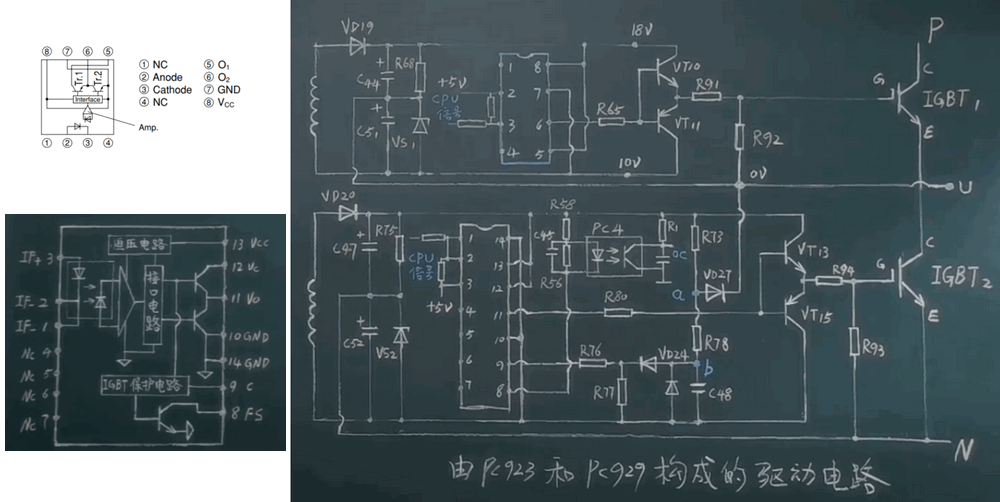 8 7 6 5
Tr.1
Tr.2
Interface
Amp.
1 2 3 4
① NC
② Anode
③ Cathode
④ NC
⑤ O1
⑥ O2
⑦ GND
⑧ VCC
IF+ 3
IF- 2
IF- 1
NC 4
NC 5
NC 6
NC 7
接口电路
IGBT保护电路
13 VCC
12 VC
11 VO
10 GND
14 GND
9 C
8 FS
VD19
C44
R68
+5V
CPU
信号
C51
VS1
1
2
3
4
8
7
6
5
18V
R65
10V
VT10
VT11
R91
R92
0V
P
G
C
E
IGBT1
U
VD20
C47
R75
CPU
信号
+5V
C52
VS2
1
2
3
4
5
6
7
14
13
12
11
10
9
8
R58
C45
R56
PC4
R1
OC
R73
a
VD27
R80
R78
R76
R77
VD24
b
C48
VT13
VT15
R94
R93
G
C
E
IGBT2
N
由PC923和PC929构成的驱动电路